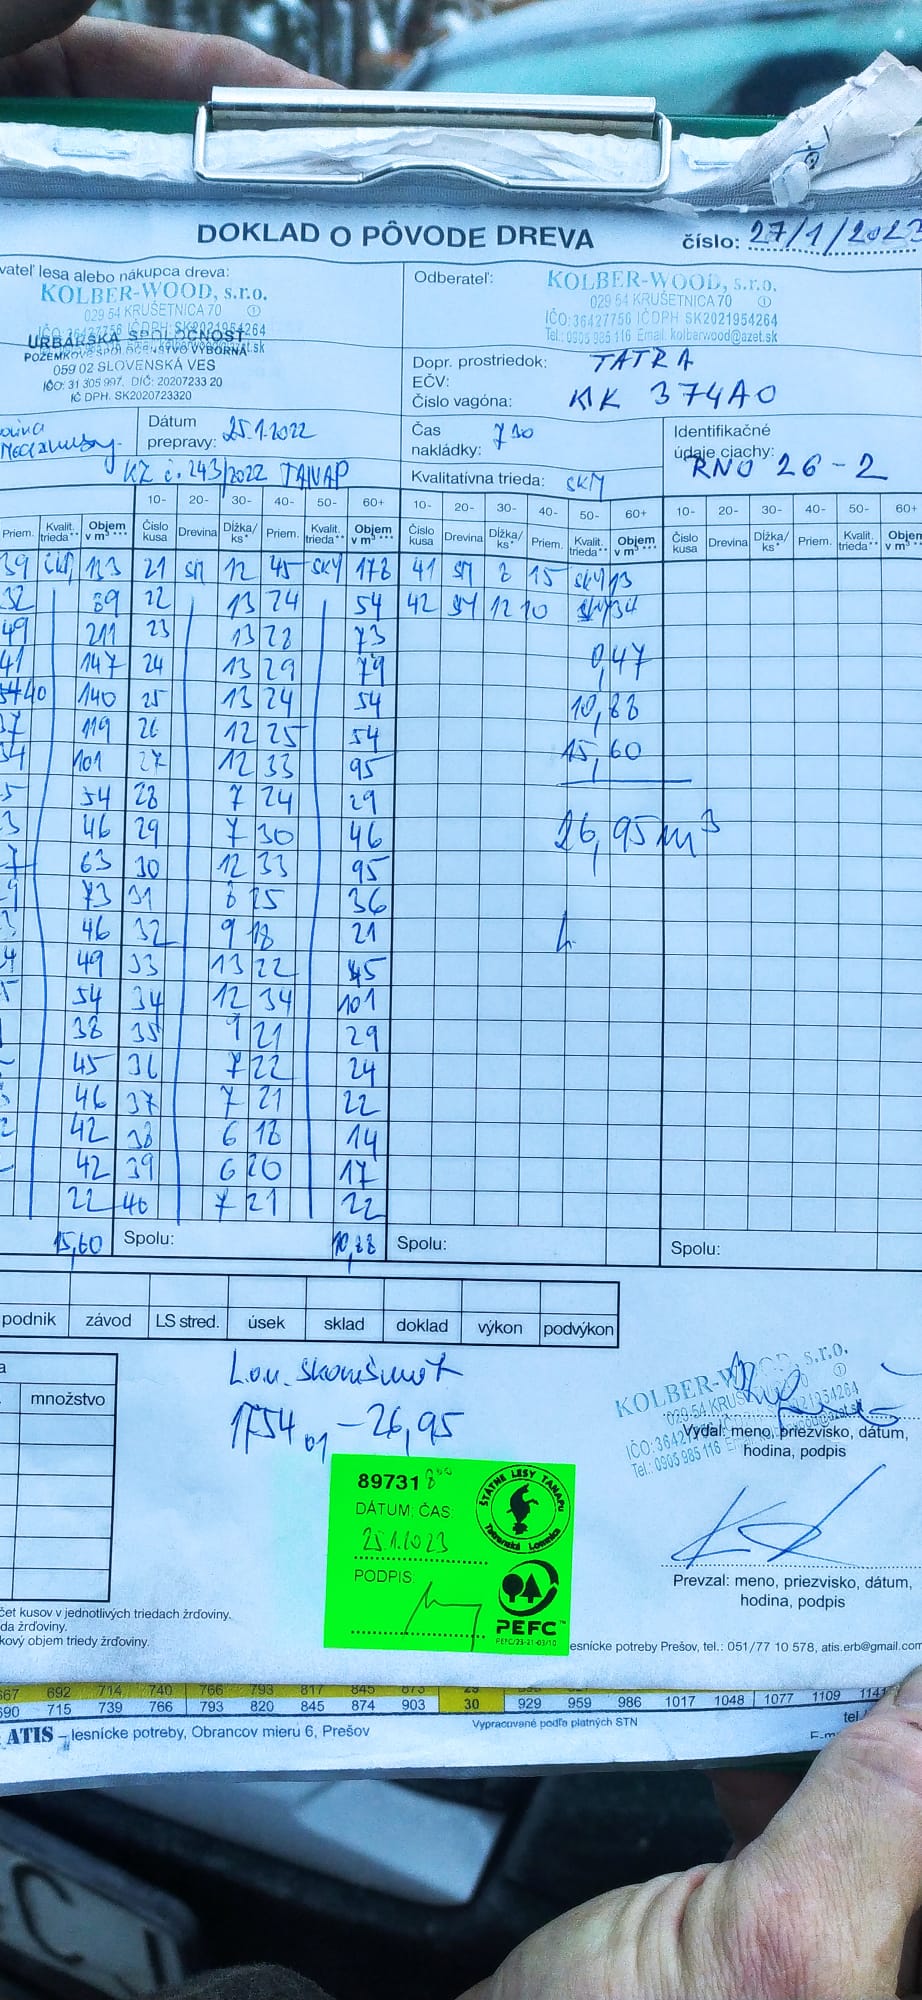 DOKLAD O PÔVODE DREVA číslo: 27/1/2023
vateľ lesa alebo nákupca dreva:
KOLBER-WOOD, s.r.o.
029 54 KRUŠETNICA 70
IČO: 36427756 IČ DPH: SK2021954264
URBÁRSKA SPOLOČNOSŤ
POZEMKOVÉ SPOLOČENSTVO VÝBORNÁ
059 02 SLOVENSKÁ VES
IČO: 31 305 997, DIČ: 20207233 20
IČ DPH. SK2020723320
Odberateľ:
KOLBER-WOOD, s.r.o.
029 54 KRUŠETNICA 70
IČO: 36427756 IČ DPH SK2021954264
Tel.: 0905 985 116 Email: kolberwood@azet.sk
Dopr. prostriedok: TATRA
EČV:
Číslo vagóna: KK 374AO
Dátum
prepravy: 25.1.2022
Čas
nakládky: 7 30
Identifikačné
údaje ciachy:
RNO 26-2
KZ č. 243/2022 TANAP
Kvalitatívna trieda: SKM
10- 20- 30- 40- 50- 60+ 10- 20- 30- 40- 50- 60+ 10- 20- 30- 40- 50- 60+
Priem. Kvalit. trieda** Objem v m³ *** Číslo kusa Drevina Dĺžka/ ks* Priem. Kvalit. trieda** Objem v m³ *** Číslo kusa Drevina Dĺžka/ ks* Priem. Kvalit. trieda** Objem v m³ *** Číslo kusa Drevina Dĺžka/ ks* Priem. Kvalit. trieda** Objem
39 133 21 SM 12 45 SKM 178 41 SM 8 15 SKM 13
32 89 22 13 24 54 42 SM 12 10 34
49 211 23 13 28 73
41 147 24 13 29 79 0,47
40 140 25 13 24 54 10,88
37 119 26 12 25 54 15,60
34 101 27 12 33 95
5 54 28 7 24 29
3 46 29 7 30 46 26,95 m³
7 63 30 12 33 95
9 73 31 8 25 36
3 46 32 9 18 21
4 49 33 13 22 45
5 54 34 12 34 101
38 35 9 21 29
45 36 7 22 24
46 37 7 21 22
2 42 38 6 18 14
42 39 6 20 17
22 40 7 21 22
15,60 Spolu: 10,88 Spolu: Spolu:
podnik závod LS stred. úsek sklad doklad výkon podvýkon
množstvo
1754 01 - 26,95
KOLBER-WOOD, s.r.o.
Tel.: 0905 985 116
Vydal: meno, priezvisko, dátum,
hodina, podpis
Prevzal: meno, priezvisko, dátum,
hodina, podpis
89731 8 00
DÁTUM: ČAS:
25.1.2023
PODPIS:
ŠTÁTNE LESY TANAPu
Tatranská Lomnica
PEFC™
PEFC/23-21-03/10
čet kusov v jednotlivých triedach žrďoviny.
da žrďoviny.
kový objem triedy žrďoviny.
esnícke potreby Prešov, tel.: 051/77 10 578, atis.erb@gmail.com
667 692 714 740 766 793 817 845 873 29
690 715 739 766 793 820 845 874 903 30 929 959 986 1017 1048 1077 1109 1141
ATIS – lesnícke potreby, Obrancov mieru 6, Prešov
Vypracované podľa platných STN
tel.